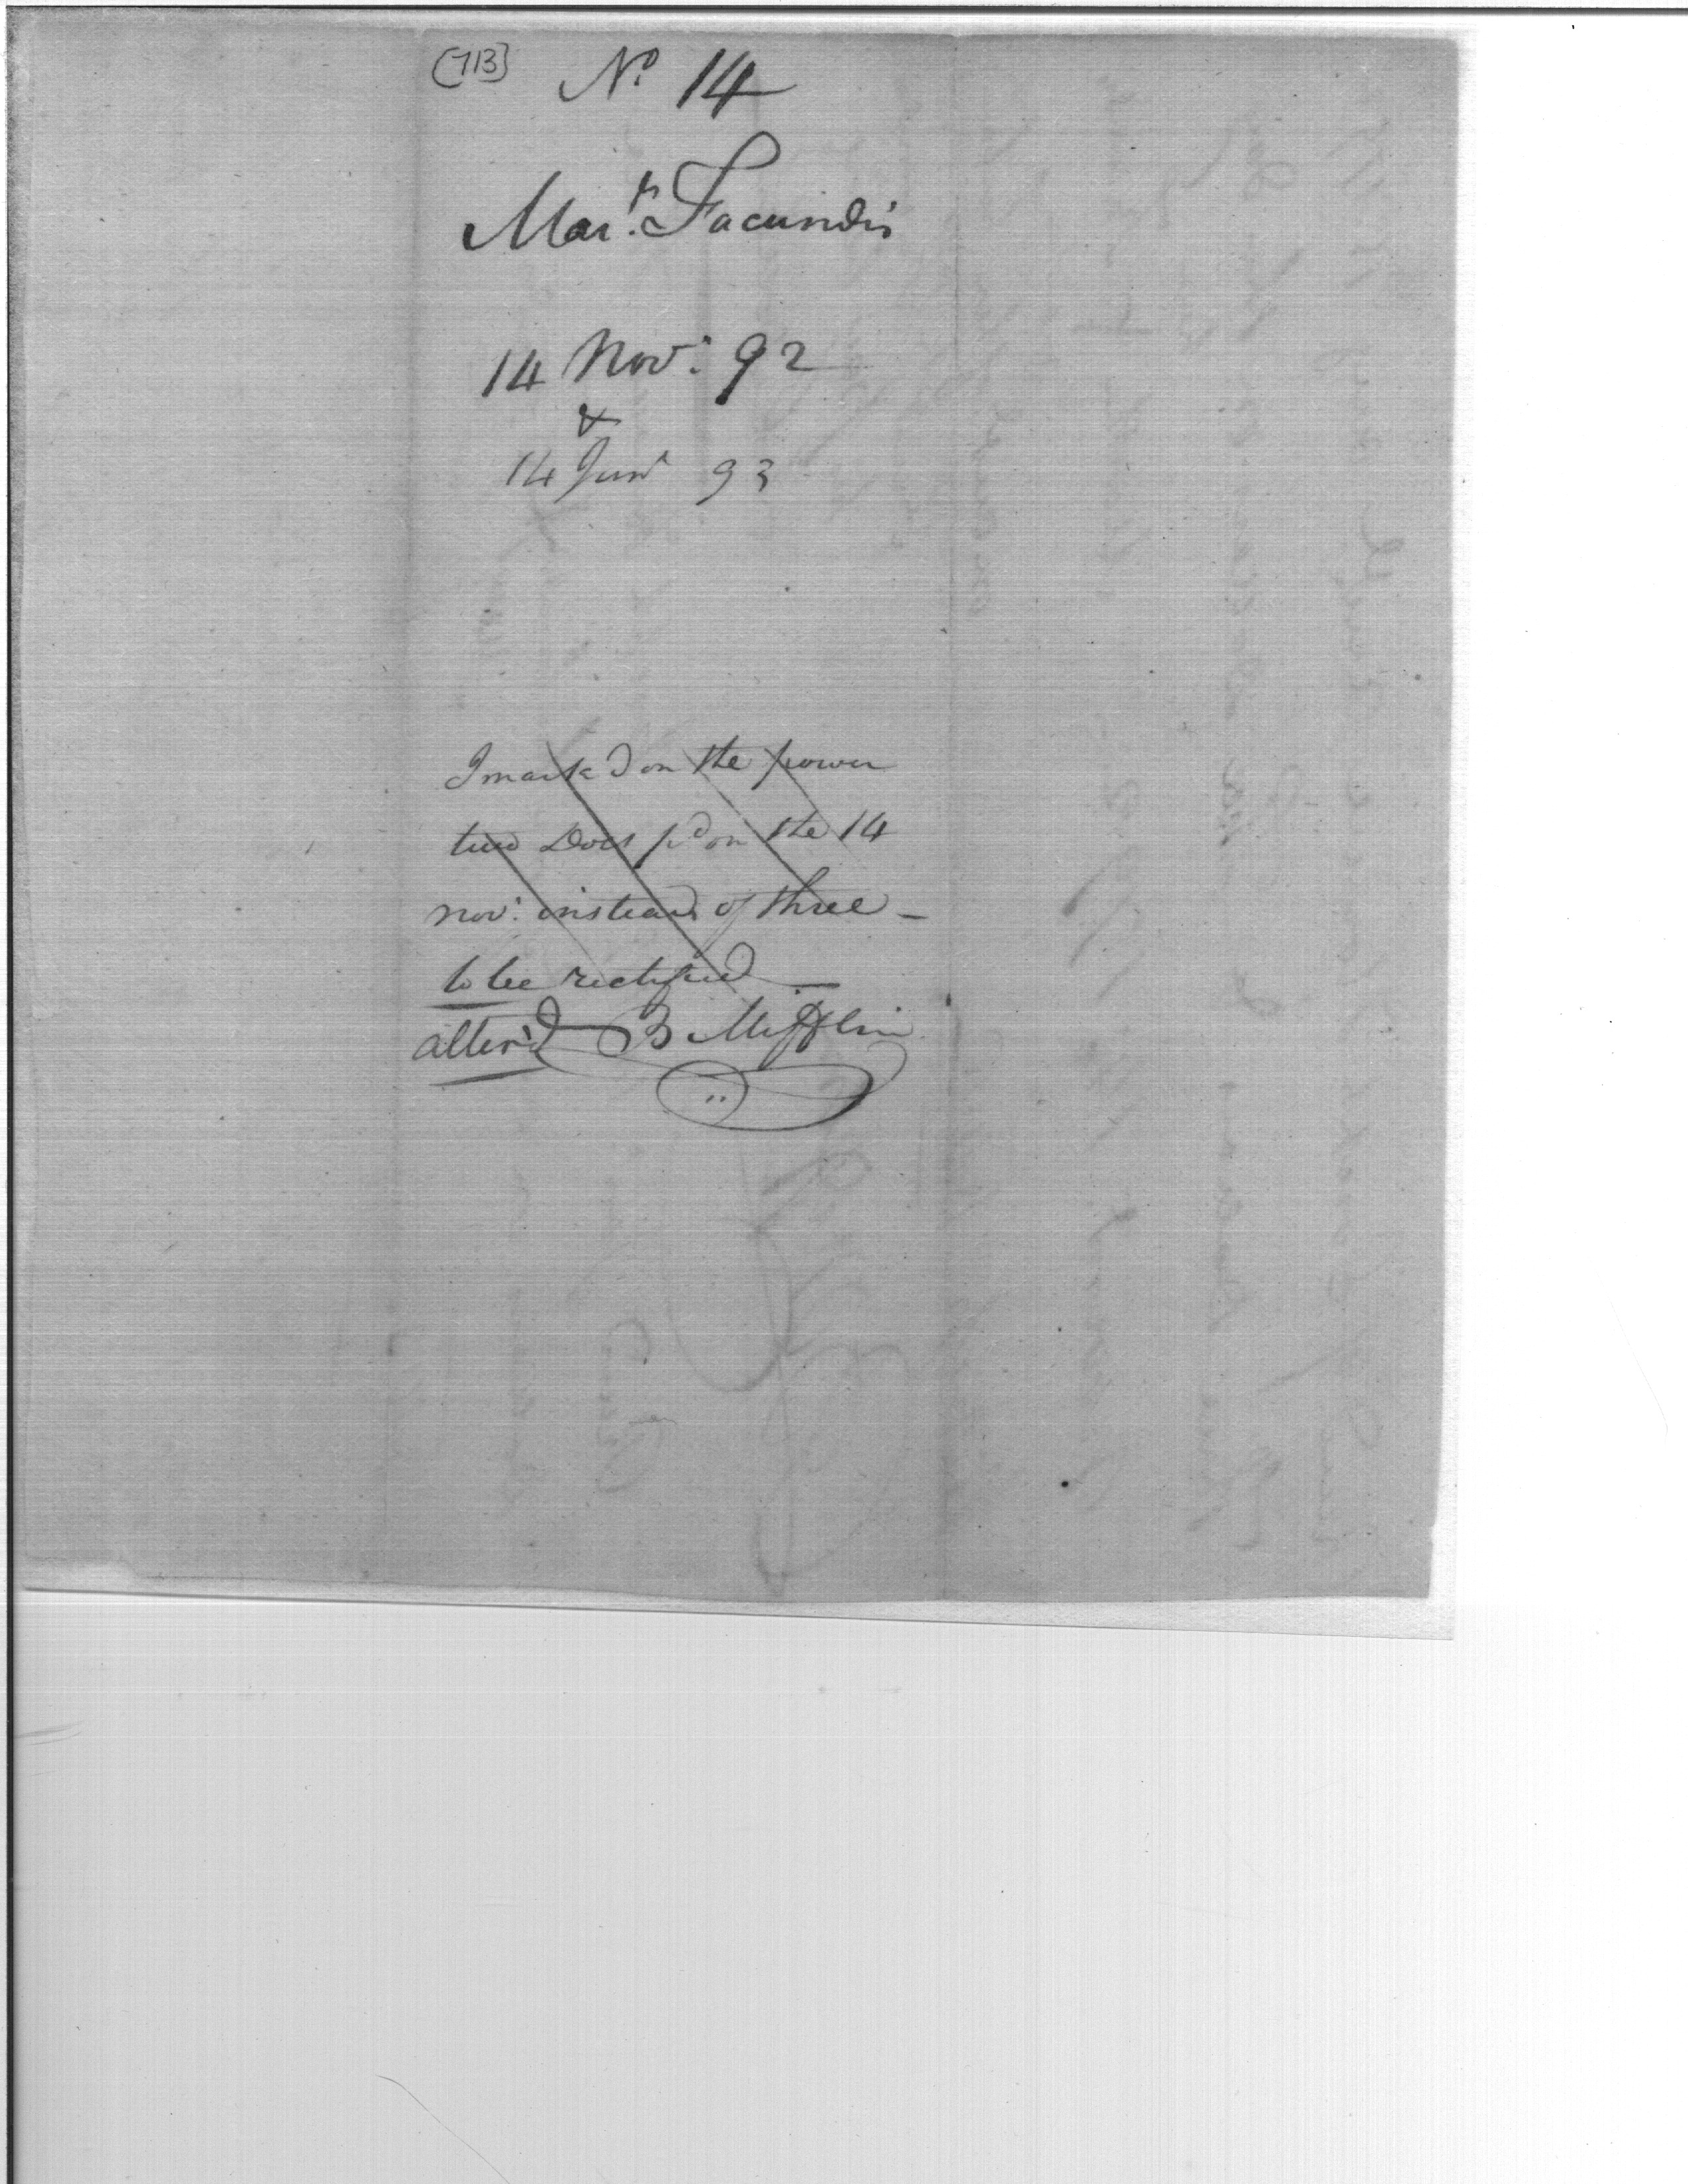 (713) No. 14
Mart. Facundis
14 Nov: 92
&
14 June 93
I mark'd on the power
two Docs pd on the 14
nov: instead of three —
to be rectified —
alter'd B Mifflin